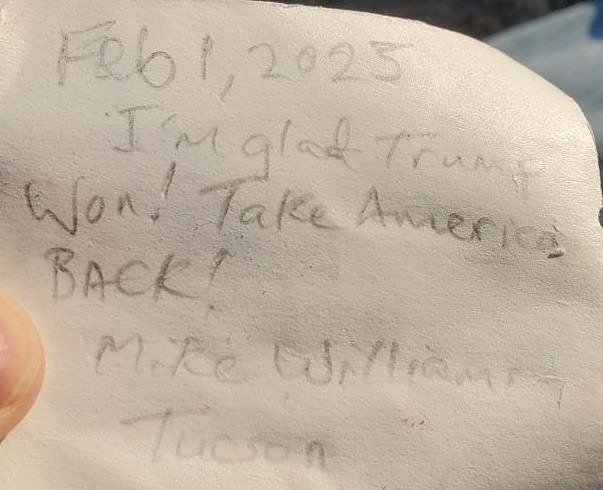 Feb 1, 2025
I'm glad Trump
Won! Take America
BACK!
Mike Williams
Tucson